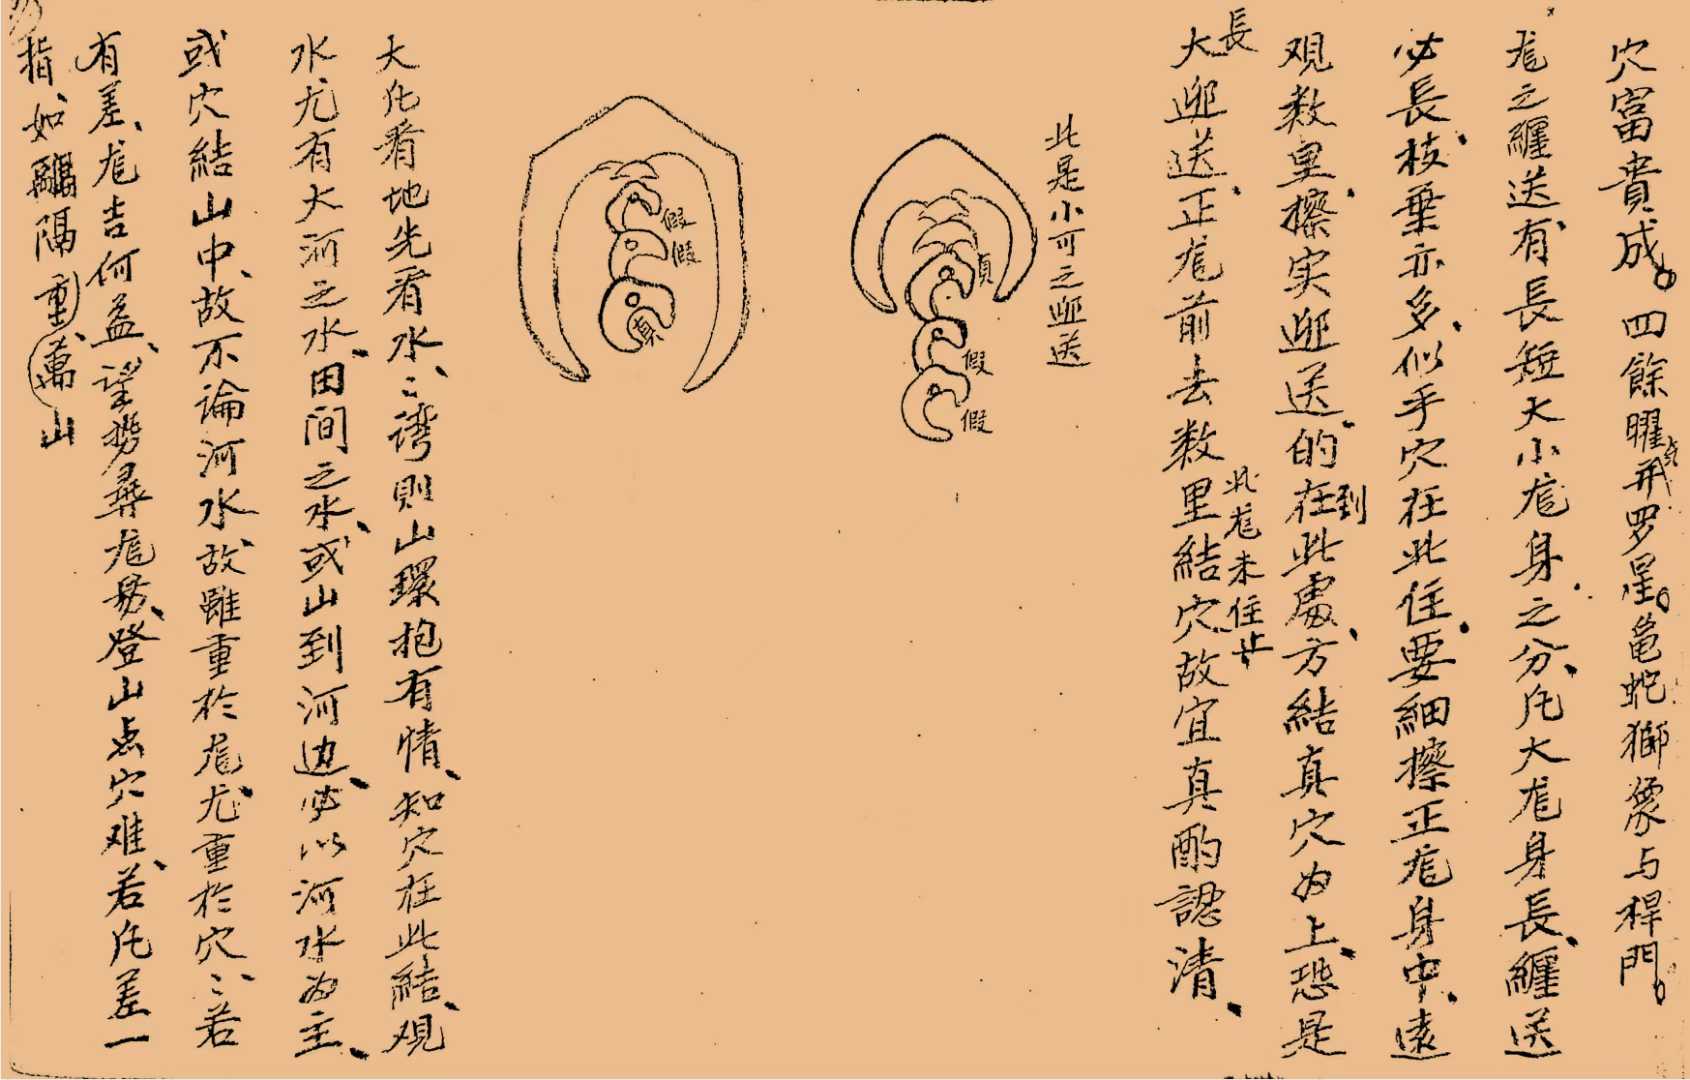 穴富貴成。四餘曜气并罗星。龟蛇獅象与桿門。
龙之纏送有長短大小龙身之分、凡大龙身長、纏送
必長、枝葉亦多、似乎穴在此住、要細擦正龙身中、遠
观数里、擦实迎送、的在到此處、方結真穴为上、恐是
長大迎送、正龙前去数里結穴、故宜真酌認清、
此龙未住止
此是小可之迎送
真
假
假
假
假
真
大凡看地先看水、〻湾則山環抱有情、知穴在此結、观
水尤有大河之水、田间之水、或山到河边、必以河水为主、
或穴結山中、故不論河水、故雖重於龙、尤重於穴〻、若
有差、龙吉何益、望势尋龙易、登山点穴难、若凡差一
指、如隔重萬山